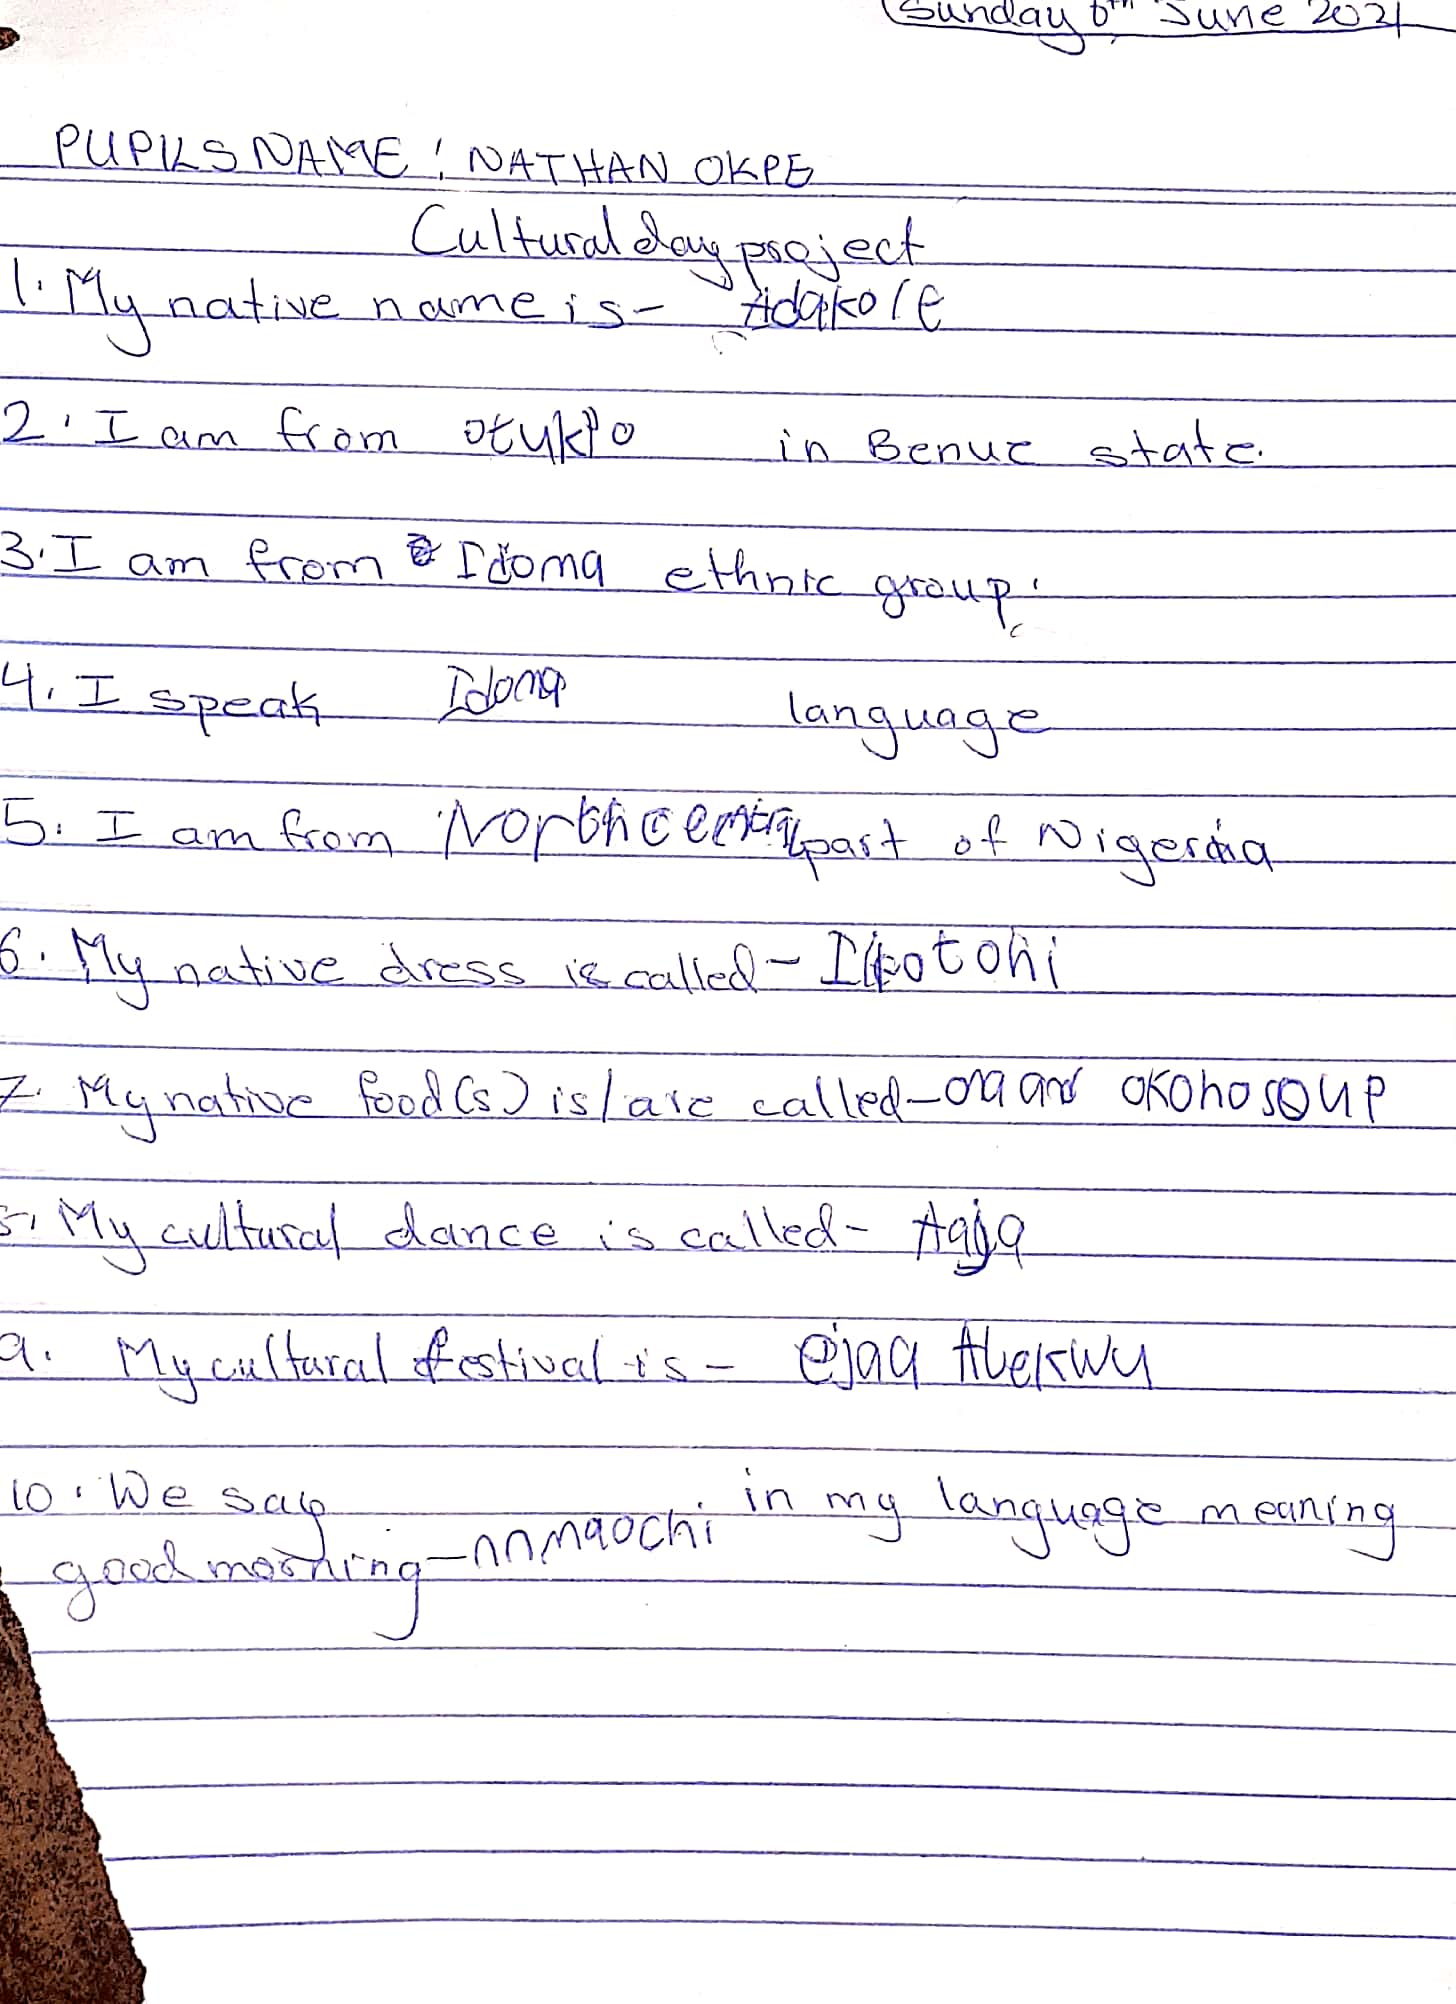 Sunday 6th June 2021
PUPILS NAME: NATHAN OKPE
Cultural day project
1. My native name is - Adakole
2. I am from otukpo in Benue state.
3. I am from Idoma ethnic group.
4. I speak Idoma language
5. I am from North central part of Nigeria
6. My native dress is called - Ikpotohi
7. My native food(s) is/are called - ona and okoho soup
8. My cultural dance is called - Agja
9. My cultural festival is - ejaa Alekwu
10. We say in my language meaning
good morning - nnmaochi